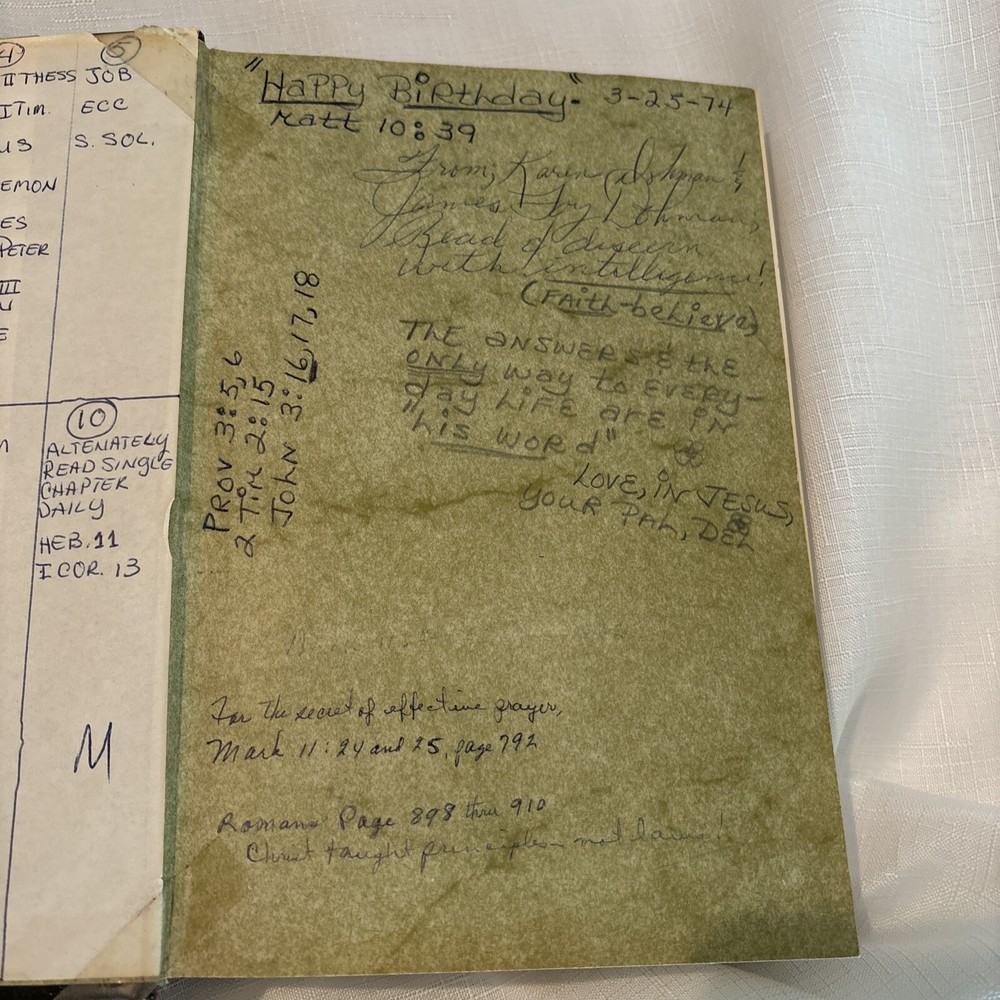 4
II THESS
I TIM.
US
EMON
ES
PETER
III
N
E
5
JOB
ECC
S. SOL.
10
ALTENATELY
READ SINGLE
CHAPTER
DAILY
HEB. 11
I COR. 13
M
"Happy Birthday" - 3-25-74
Matt 10:39
From, Karen
James
Read & discern
with intelligence!
(FAith-believe)
THE ANSWERS & the
ONLY way to EVERY-
day LiFE ARE iN
"his WORd"
LOVE, iN JESUS,
YOUR PAL, DEL
PROV 3:5,6
2 TiM 2:15
JOHN 3:16,17,18
For the secret of effective prayer,
Mark 11:24 and 25, page 792
Romans Page 898 thru 910
Christ taught principles not laws!